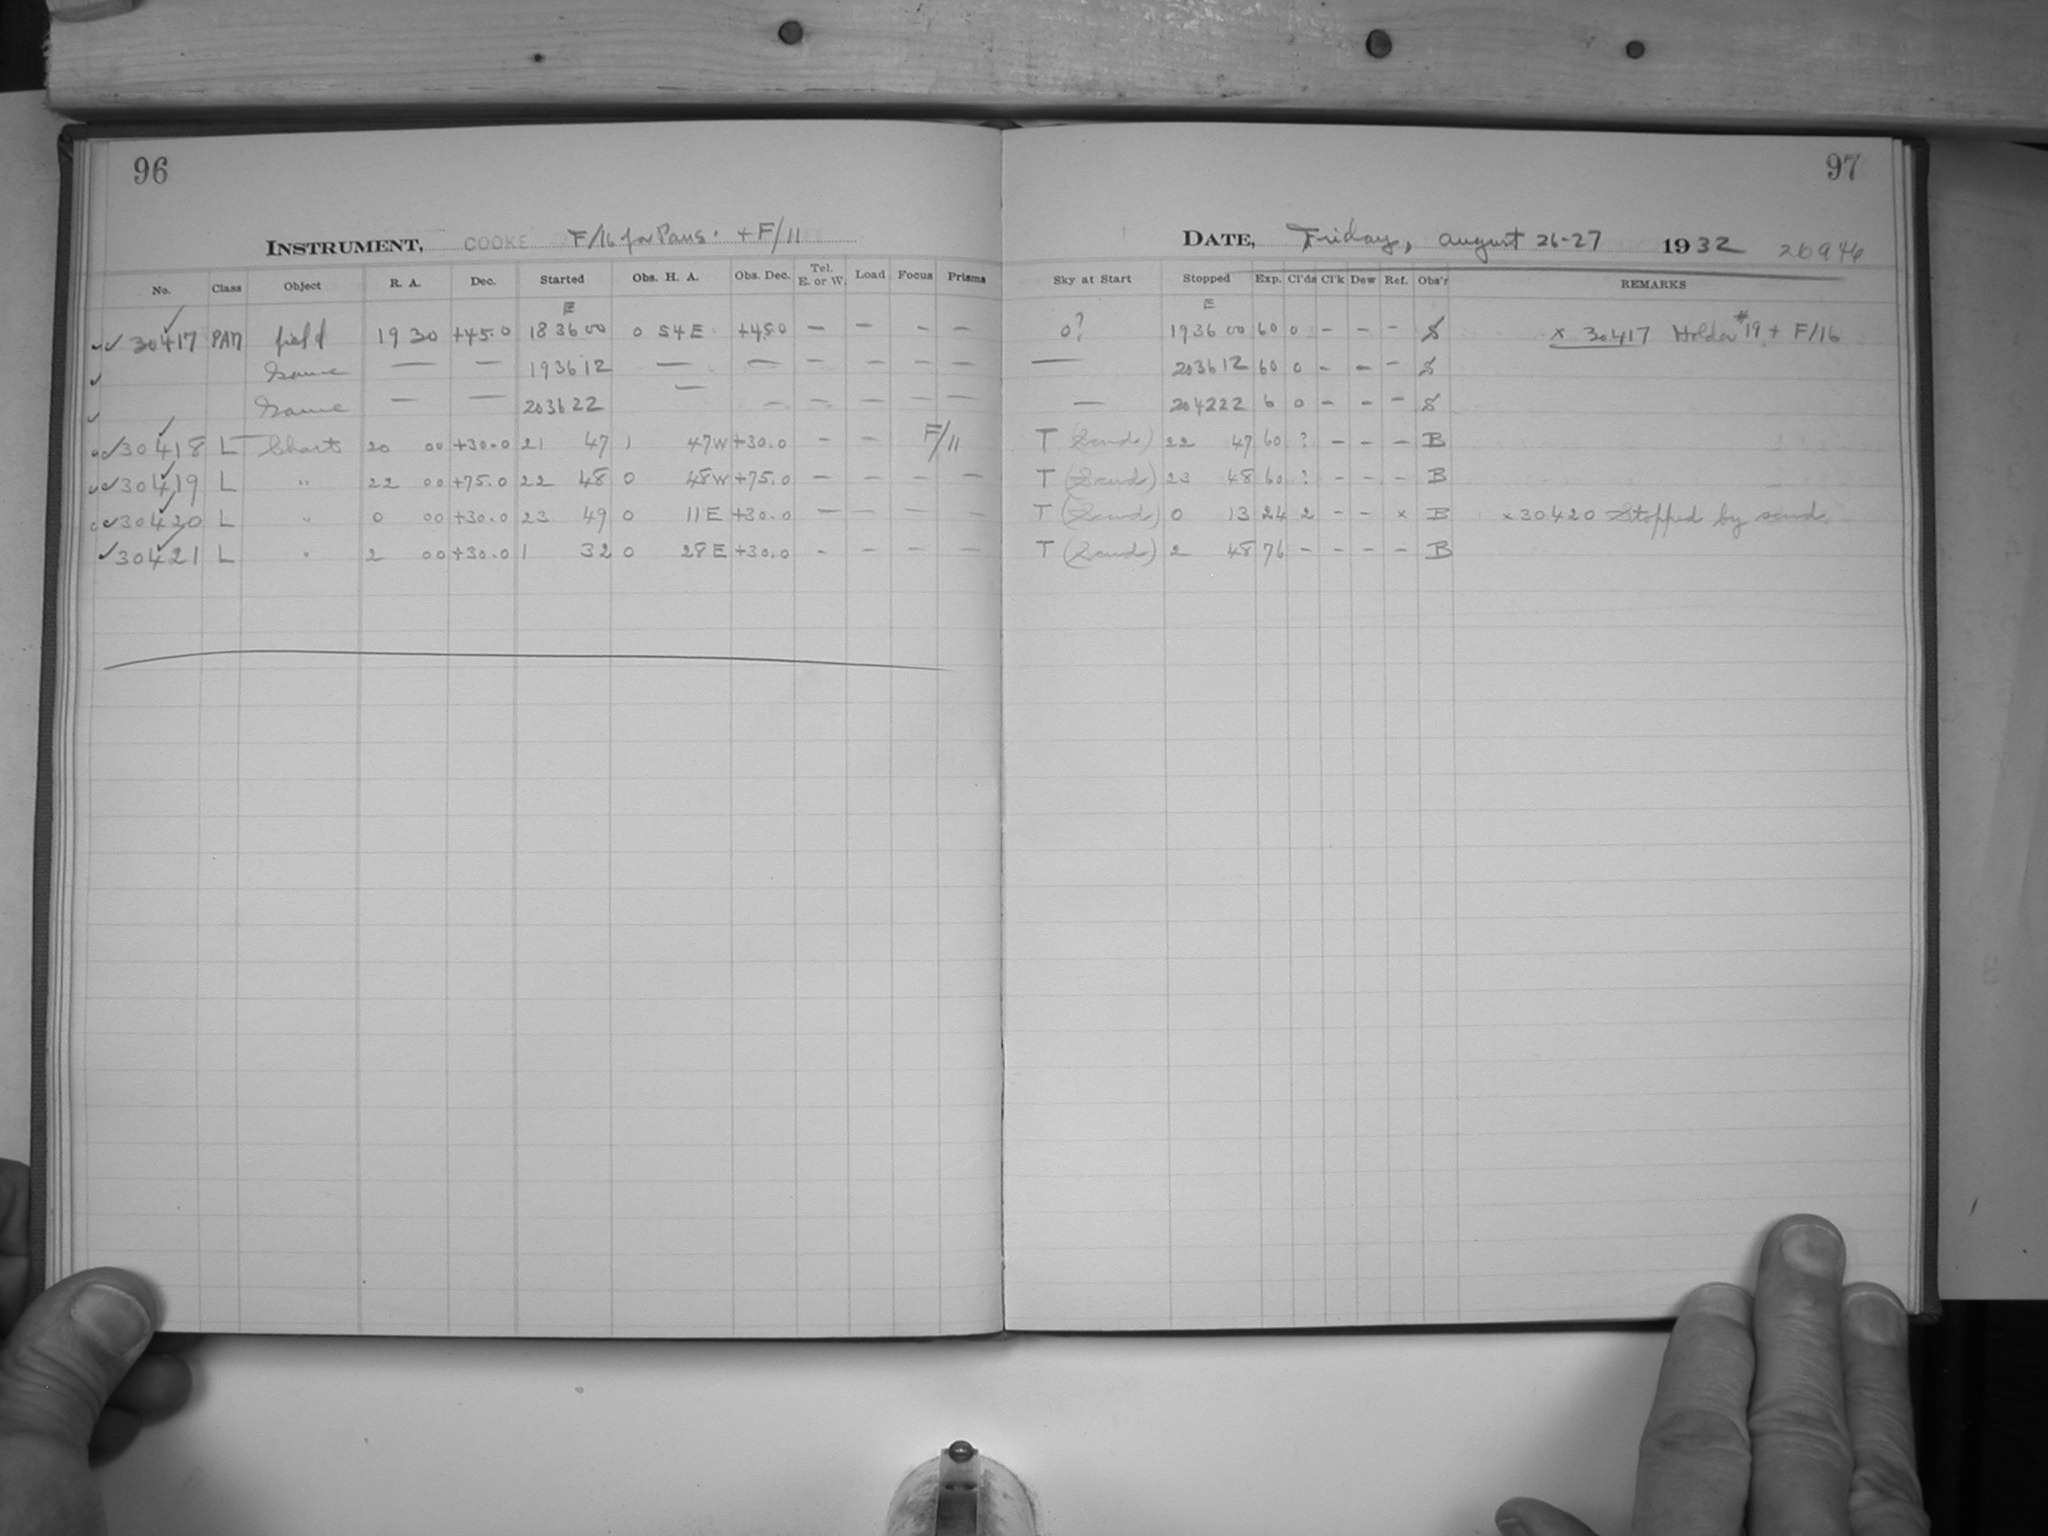 96
INSTRUMENT, COOKE F/16 for Pans. + F/11
No. Class Object R. A. Dec. Started Obs. H. A. Obs. Dec. Tel. E. or W. Load Focus Prisms
E
30417 PAN field 19 30 +45.0 18 36 00 0 54 E +45.0 — — — —
Same — — 19 36 12 — — — — — —
Same — — 20 36 22 — — — — — —
30418 L Charts 20 00 +30.0 21 47 1 47 W +30.0 — — F/11
30419 L " 22 00 +75.0 22 48 0 48 W +75.0 — — — —
30420 L " 0 00 +30.0 23 49 0 11 E +30.0 — — — —
30421 L " 2 00 +30.0 1 32 0 28 E +30.0 — — — —
97
DATE, Friday, August 26-27 1932 26946
Sky at Start Stopped Exp. Cl'ds Cl'k Dew Ref. Obs'r REMARKS
E
0? 19 36 00 60 0 — — — S x 30417 Holder #19 + F/16
— 20 36 12 60 0 — — — S
— 20 42 22 6 0 — — — S
T 22 47 60 ? — — — B
T 23 48 60 ? — — — B
T 0 13 24 2 — — x B x 30420 Stopped by
T 2 48 76 — — — — B